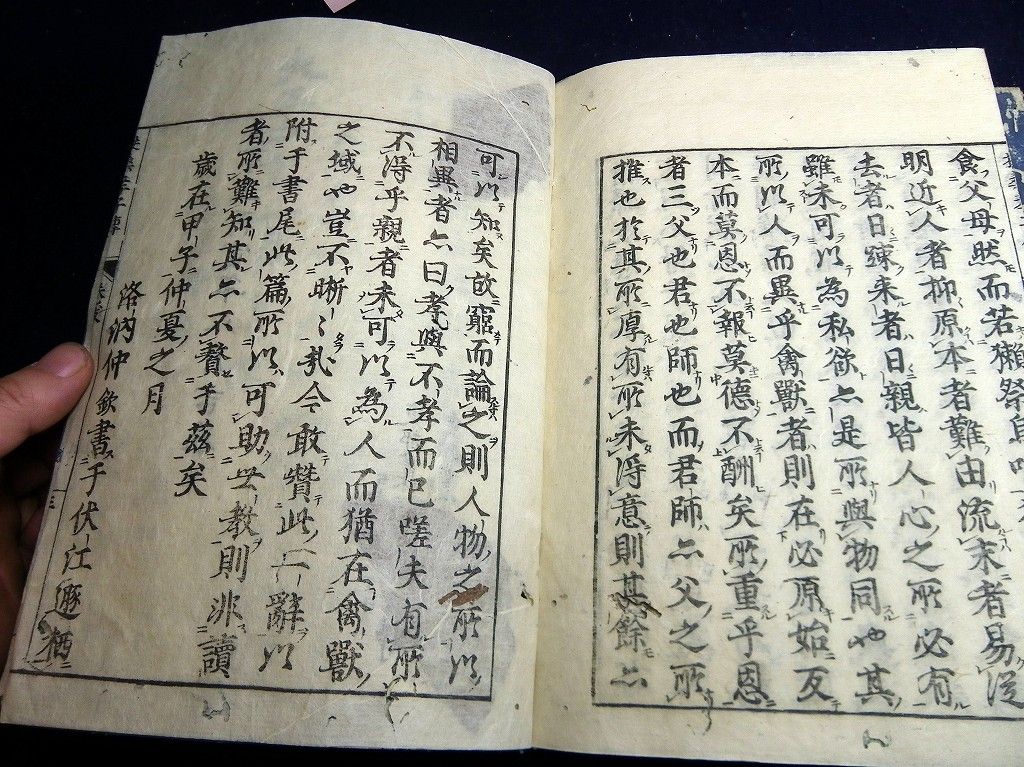 食父母然而若獺祭鳥
明近人者抑原本者難由流末者易從
去者日疎来者日親皆人心之所必有
雖未可以為私欲亦是所與物同也其
所以人而異乎禽獸者則在必原始反
本而莫恩不報莫德不酬矣所重乎恩
者三父也君也師也而君師亦父之所
推也於其所厚有所未得意則其餘亦
可以知矣故窮而論之則人物之所以
相異者亦曰孝與不孝而已嗟夫有所
不得乎親者未可以為人而猶在禽獸
之域也豈不晰〻哉今敢贊此一辭以
附于書尾此篇所以可助世教則非讀
者所難知其亦不贅于茲矣
歲在甲子仲夏之月
洛汭仲欽書于伏江遯栖